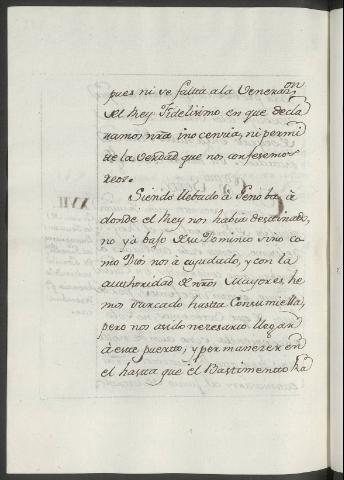 pues ni se falta a la Veneraon
del Rey Fidelisimo en que decla
ramos nra inocencia, ni permi
te la Verdad que nos confesemos
reos.
Siendo llebado â Genoba, â
donde el Rey nos habia destinado,
no yâ bajo de su Dominio sino co
mo Dios nos â ayudado, y con la
authoridad de nros Mayores, he
mos surcado hasta
pero nos asido necesario llegar
â este puerto, y permanecer en
el hasta que el Bastimento
XVII